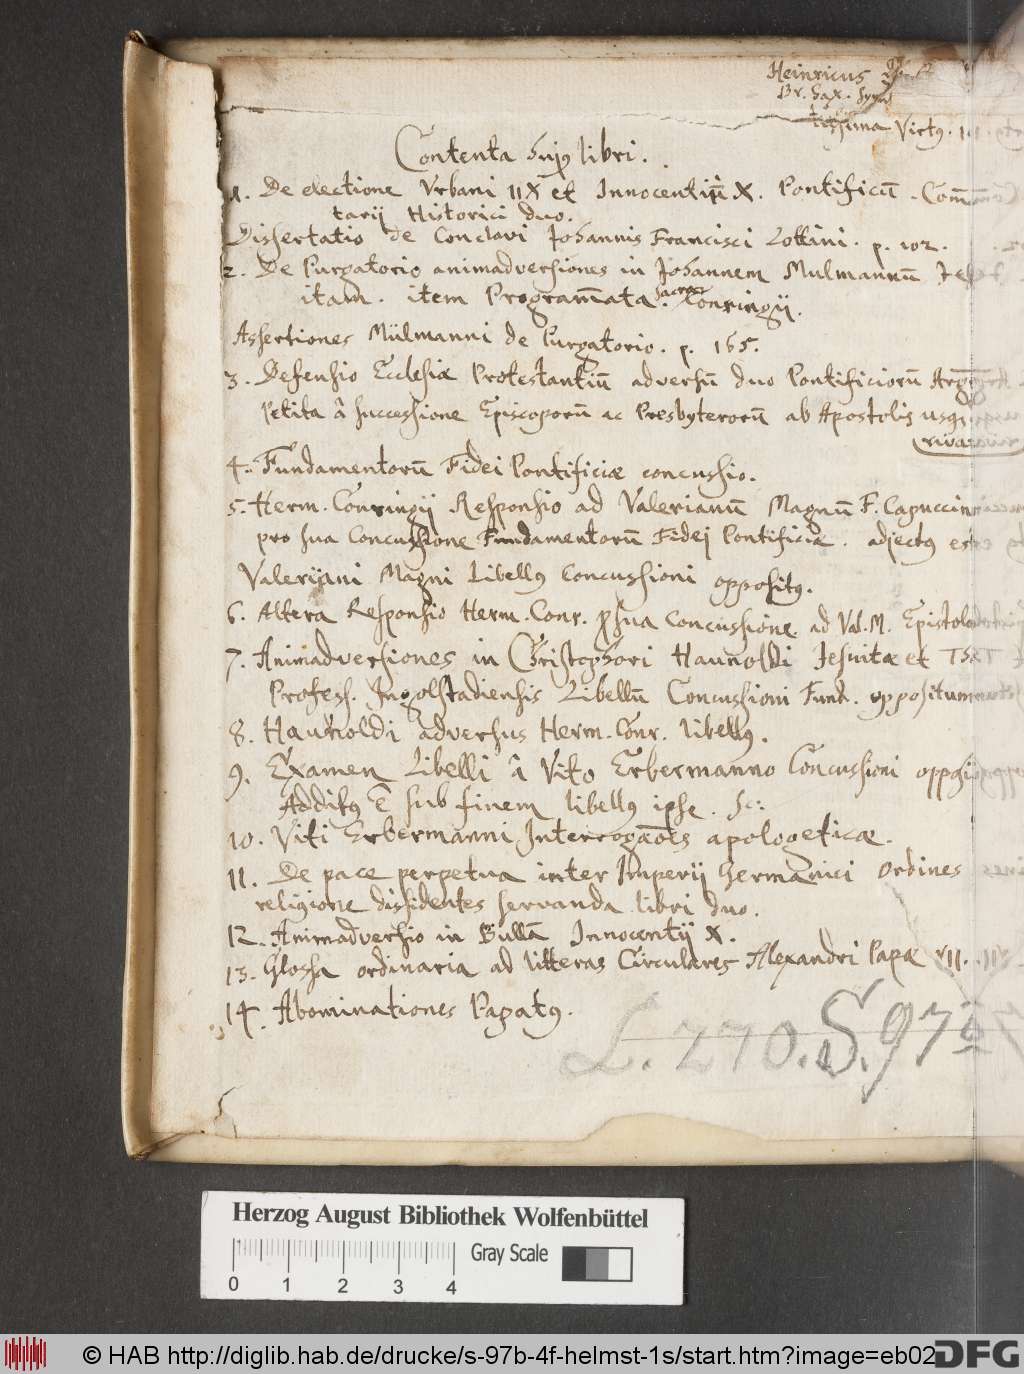 Heinricus
Br. Sax.
Victus.
Contenta hujus libri.
1. De electione Urbani IIX et Innocentii X. Pontificū. Com̄en
tarij Historici duo.
Dissertatio de Conclavi Johannis Francisci Lottini. p. 102.
2. De Purgatorio animadversiones in Johannem Mulmannū Jesu
itam. item Programmata sacra Conringij.
Assertiones Mülmanni de Purgatorio. p. 165.
3. Defensio Ecclesiæ Protestantiū adversū duo Pontificiorū Arg̅
Petita â successione Episcoporū ac Presbyterorū ab Apostolis usq
4. Fundamentorū Fidei Pontificiæ concussio.
5. Herm. Conringij Responsio ad Valerianū Magnū F. Capuccin
pro sua Concussione Fundamentorū Fidej Pontificiæ. adjectus est
Valeriani Magni Libellus Concussioni oppositus.
6. Altera Responsio Herm. Conr. p sua Concussione ad Val. M. Epistola
7. Animadversiones in Christophori Haunoldi Jesuitæ et
Profess. Ingolstadiensis Libellū Concussioni Fund. oppositum
8. Haunoldi adversus Herm. Conr. libellus.
9. Examen Libelli â Vito Erbermanno Concussioni oppositi
Additus ē sub finem libellus ipse. sc:
10. Viti Erbermanni Interrogāōēs apologeticæ.
11. De pace perpetua inter Imperij Germanici Ordines
religione dissidentes servanda libri duo.
12. Animadversio in Bullā Innocentij X.
13. Glossa ordinaria ad litteras Circulares Alexandri Papæ VII.
14. Abominationes Papatus.
L. 270. S. 97b
Herzog August Bibliothek Wolfenbüttel
Gray Scale
0 1 2 3 4
© HAB http://diglib.hab.de/drucke/s-97b-4f-helmst-1s/start.htm?image=eb02
DFG